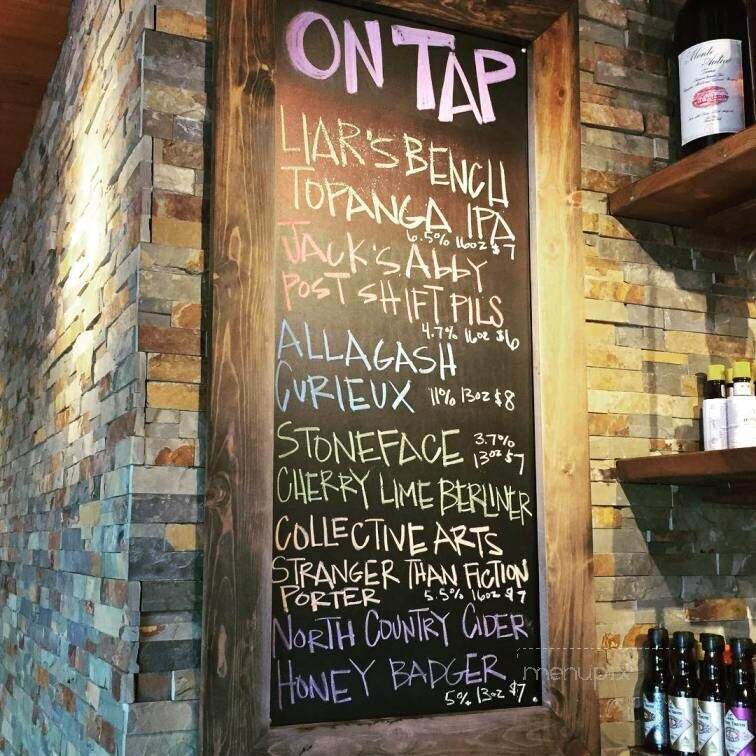 ON TAP
LIAR'S BENCH
TOPANGA IPA
6.5% 16oz $7
JACK'S ABBY
POST SHIFT PILS
4.7% 16oz $6
ALLAGASH
CURIEUX 11% 13oz $8
STONEFACE 3.7%
13oz $7
CHERRY LIME BERLINER
COLLECTIVE ARTS
STRANGER THAN FICTION
PORTER 5.5% 16oz $7
NORTH COUNTRY CIDER
HONEY BADGER
5% 13oz $7.
menupix